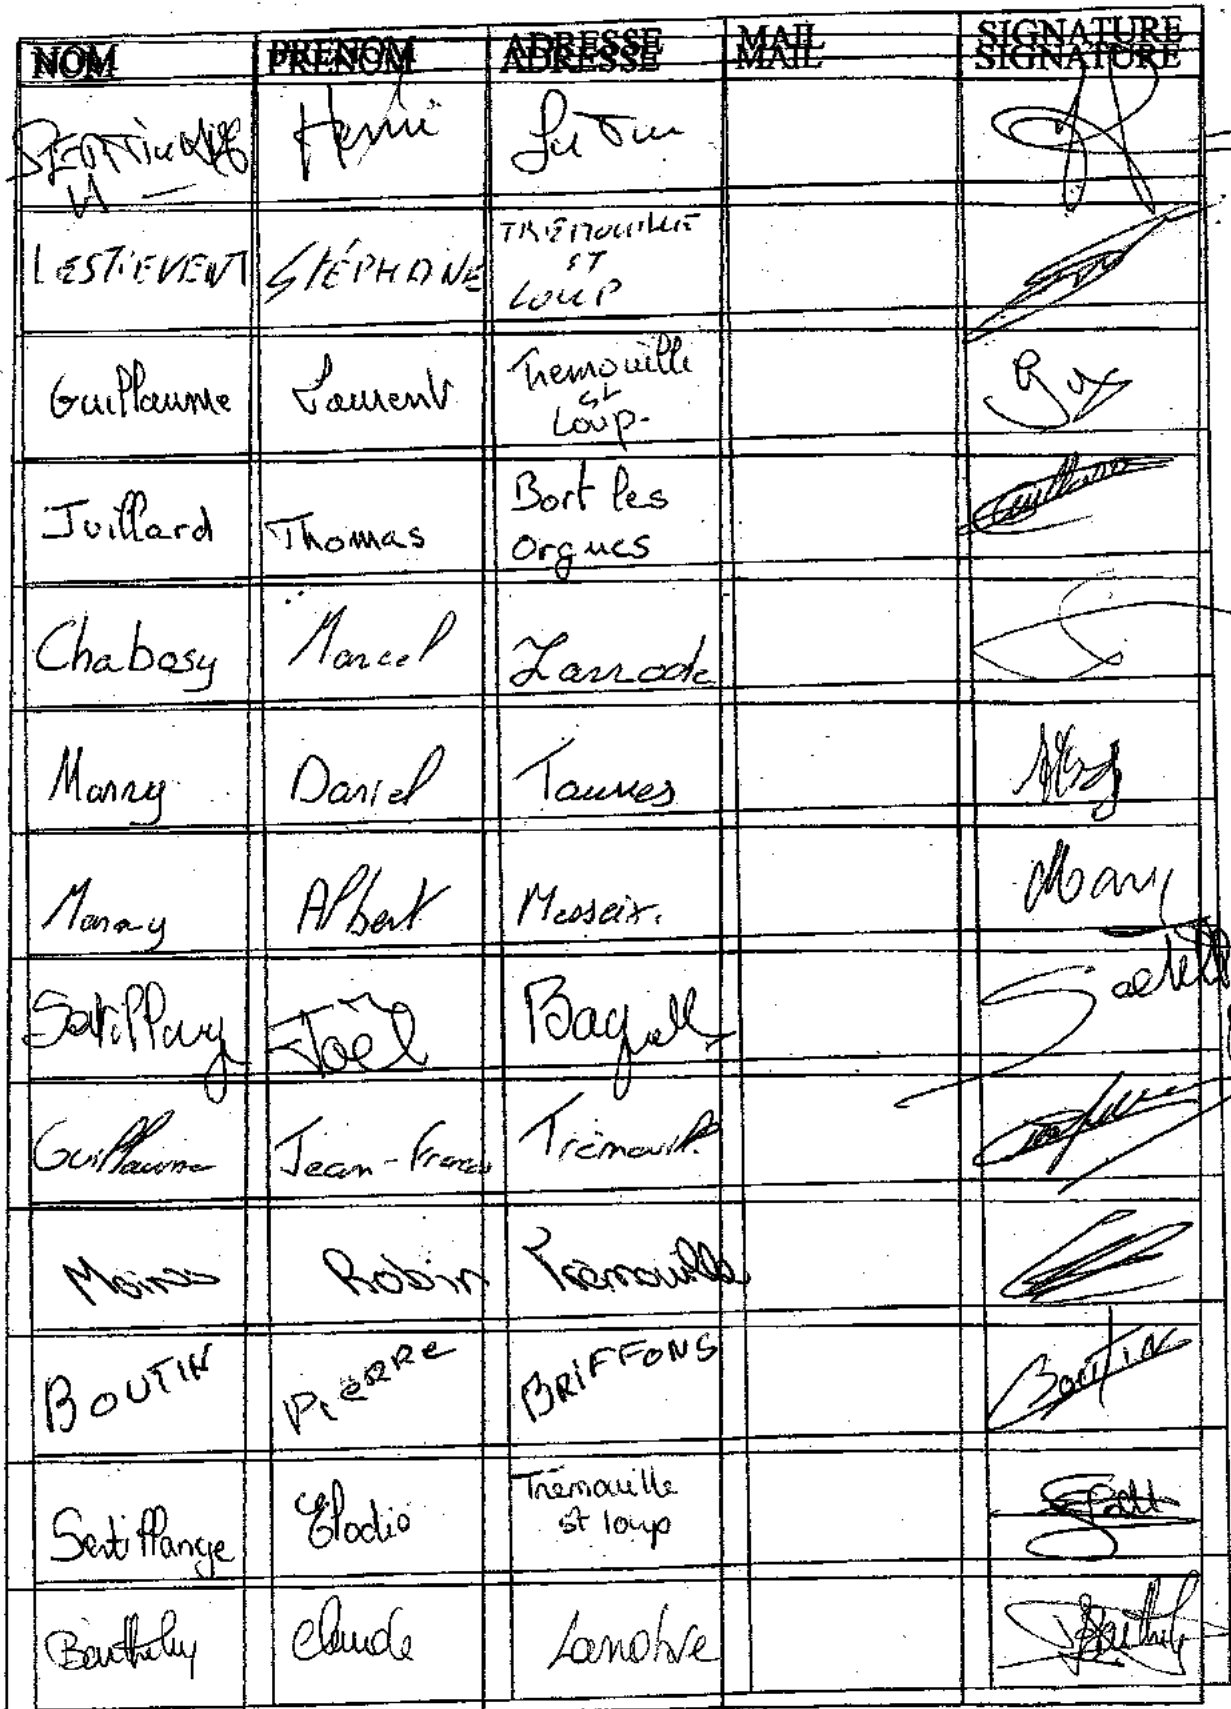 NOM PRENOM ADRESSE MAIL SIGNATURE
NOM PRENOM ADRESSE MAIL SIGNATURE
Henri
LESTIEVENT STÉPHANE TREMOUILLE
ST
LOUP
Guillaume Laurent Tremouille
St
Loup-
Juillard Thomas Bort les
Orgues
Chabosy Marcel Larrode
Marry Daniel Tauves
Marry Albert Messeix.
Joël
Guillaume Jean-Franço Trémouil.
Moins Robin Tremouille
BOUTIN PIERRE BRIFFONS Boutin
Sentillange Élodie Trémouille
st loup
Berthely Claude Lanobre